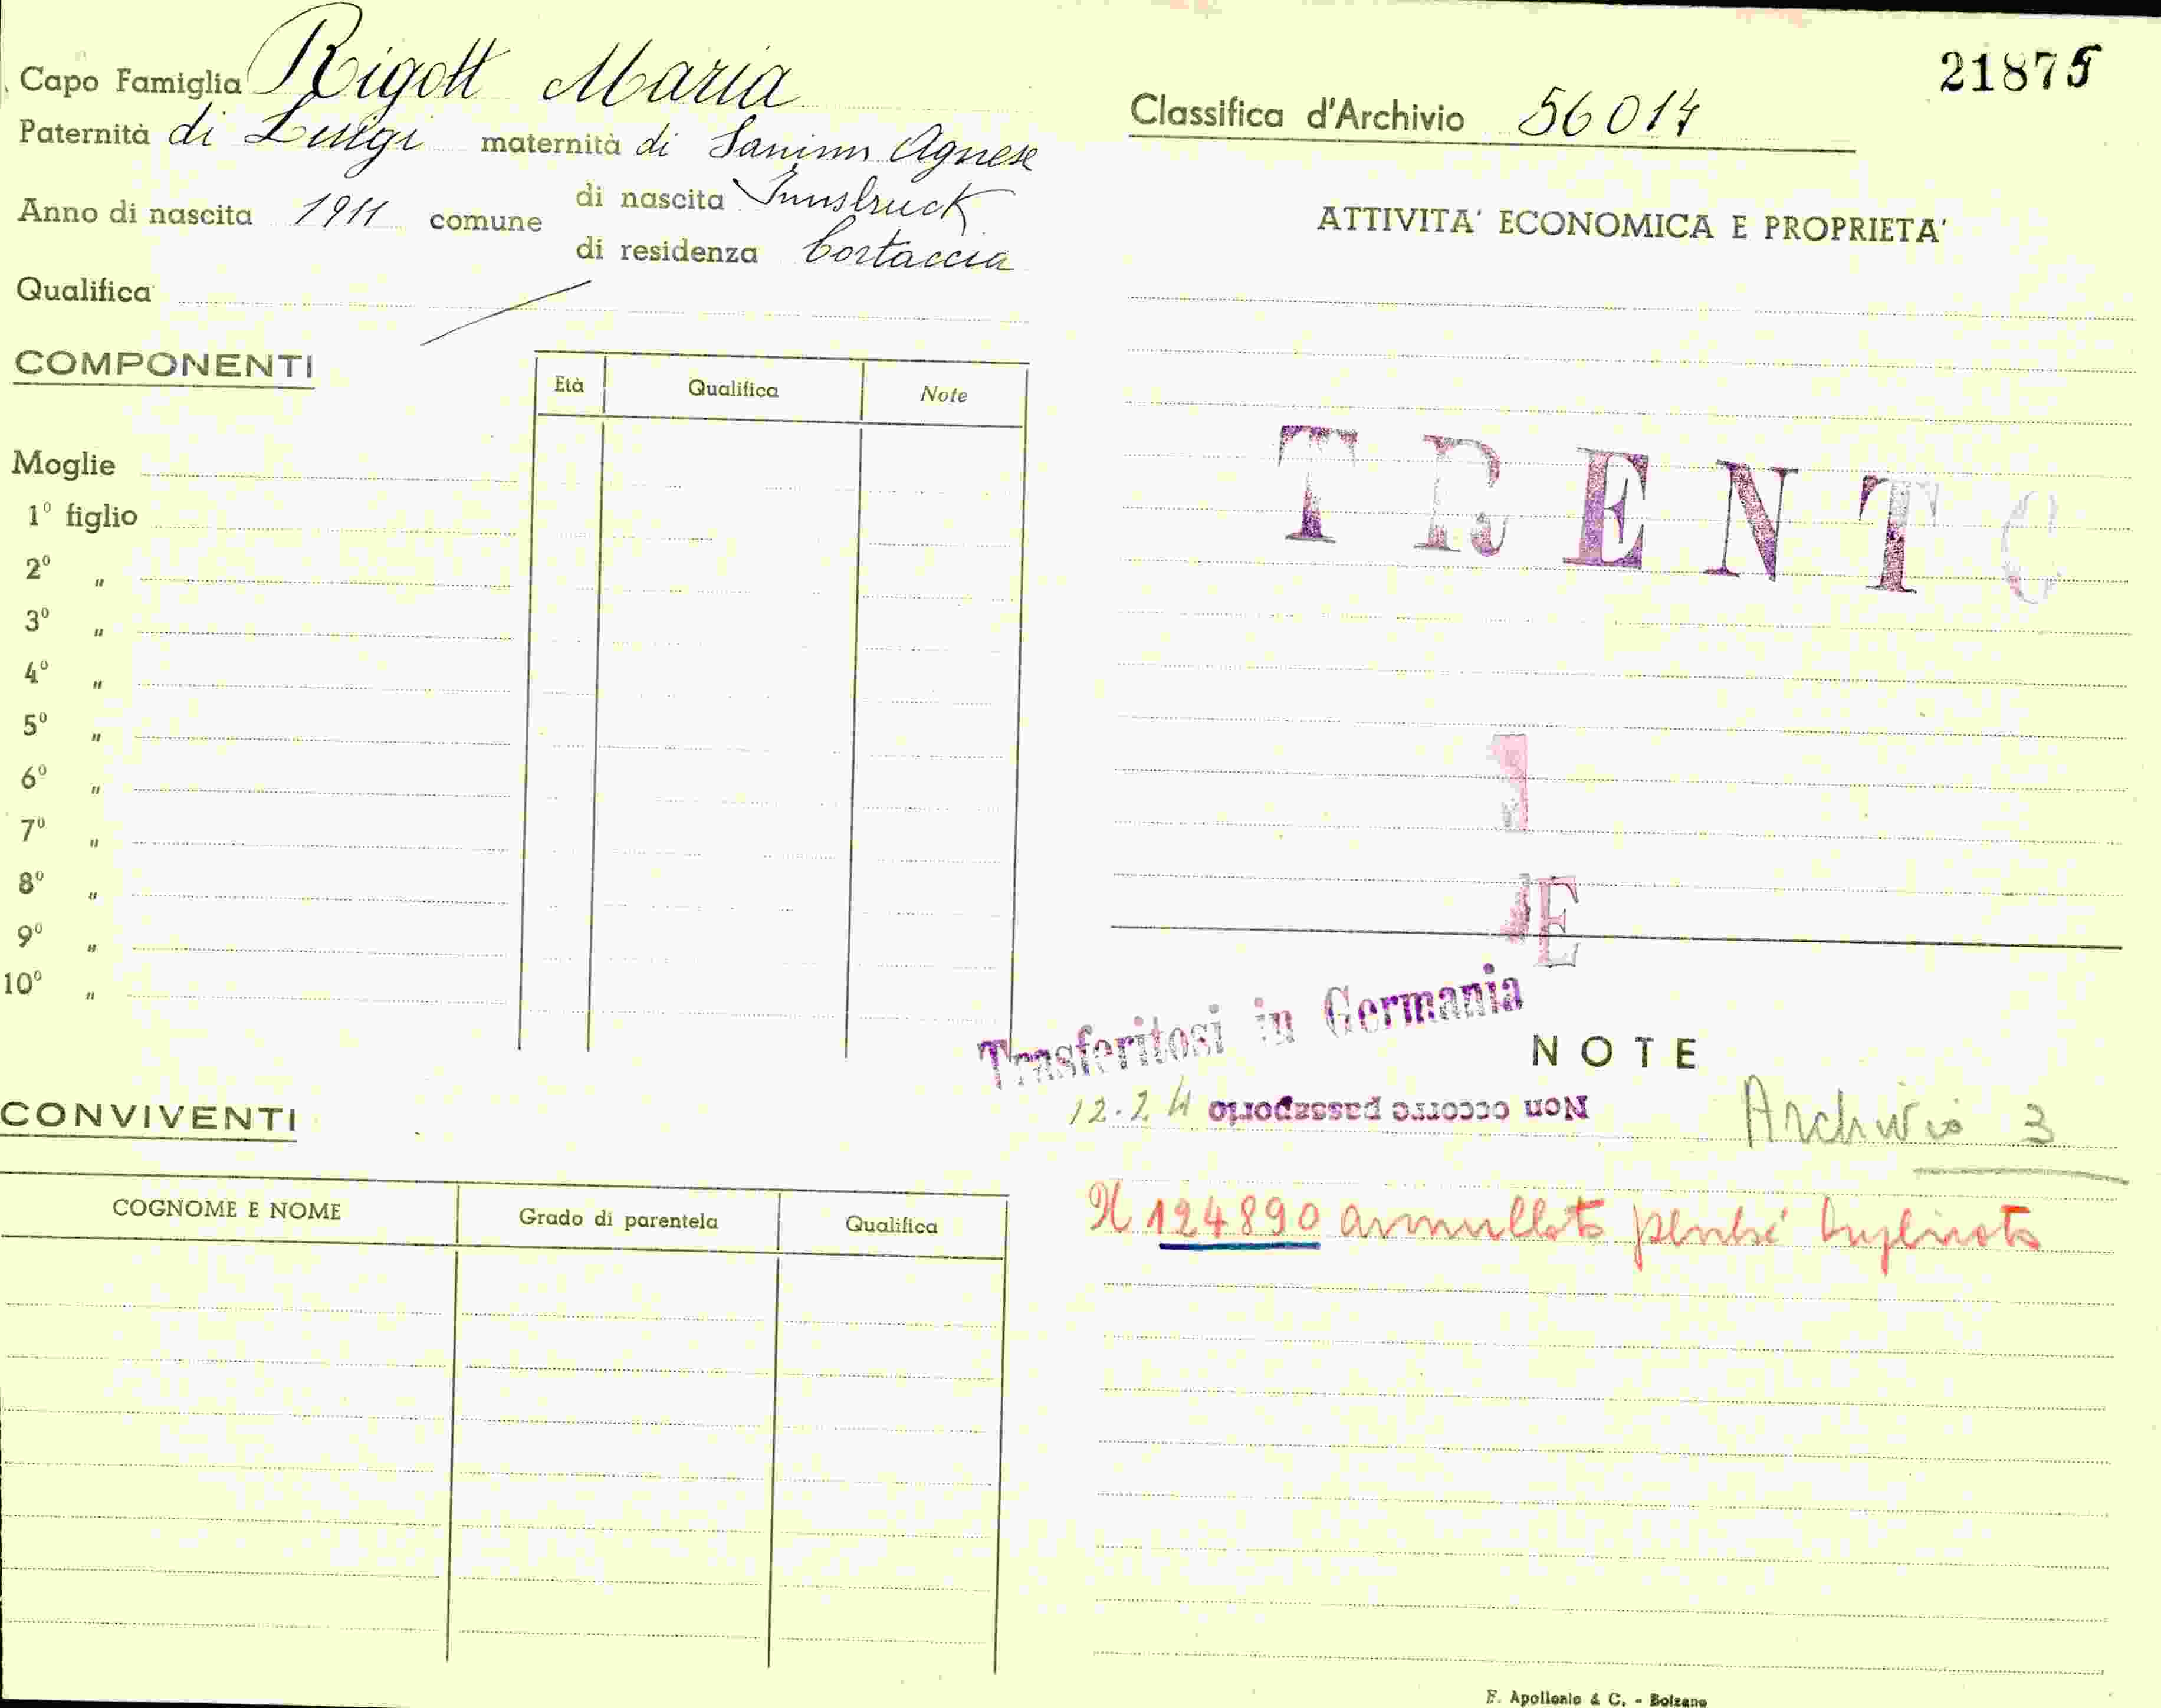 Capo Famiglia Rigott Maria
Paternità di Luigi maternità di Sanimn Agnese
Anno di nascita 1911 comune di nascita Innsbruck
di residenza Cortaccia
Qualifica
COMPONENTI
Età Qualifica Note
Moglie
1º figlio
2º "
3º "
4º "
5º "
6º "
7º "
8º "
9º "
10º "
CONVIVENTI
COGNOME E NOME Grado di parentela Qualifica
21875
Classifica d'Archivio 56014
ATTIVITA' ECONOMICA E PROPRIETA'
TRENTO
E
Trasferitosi in Germania
NOTE
12.2 Non occorre passaporto
Archivio 3
Il 124890 annullato perché duplicato
F. Apollonio & C. - Bolzano